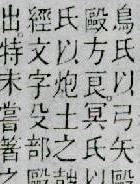 鳥氏以弓矢
毆方良冥氏以
氏以炮土之鼓
經文字殳部毆
出特未嘗著之